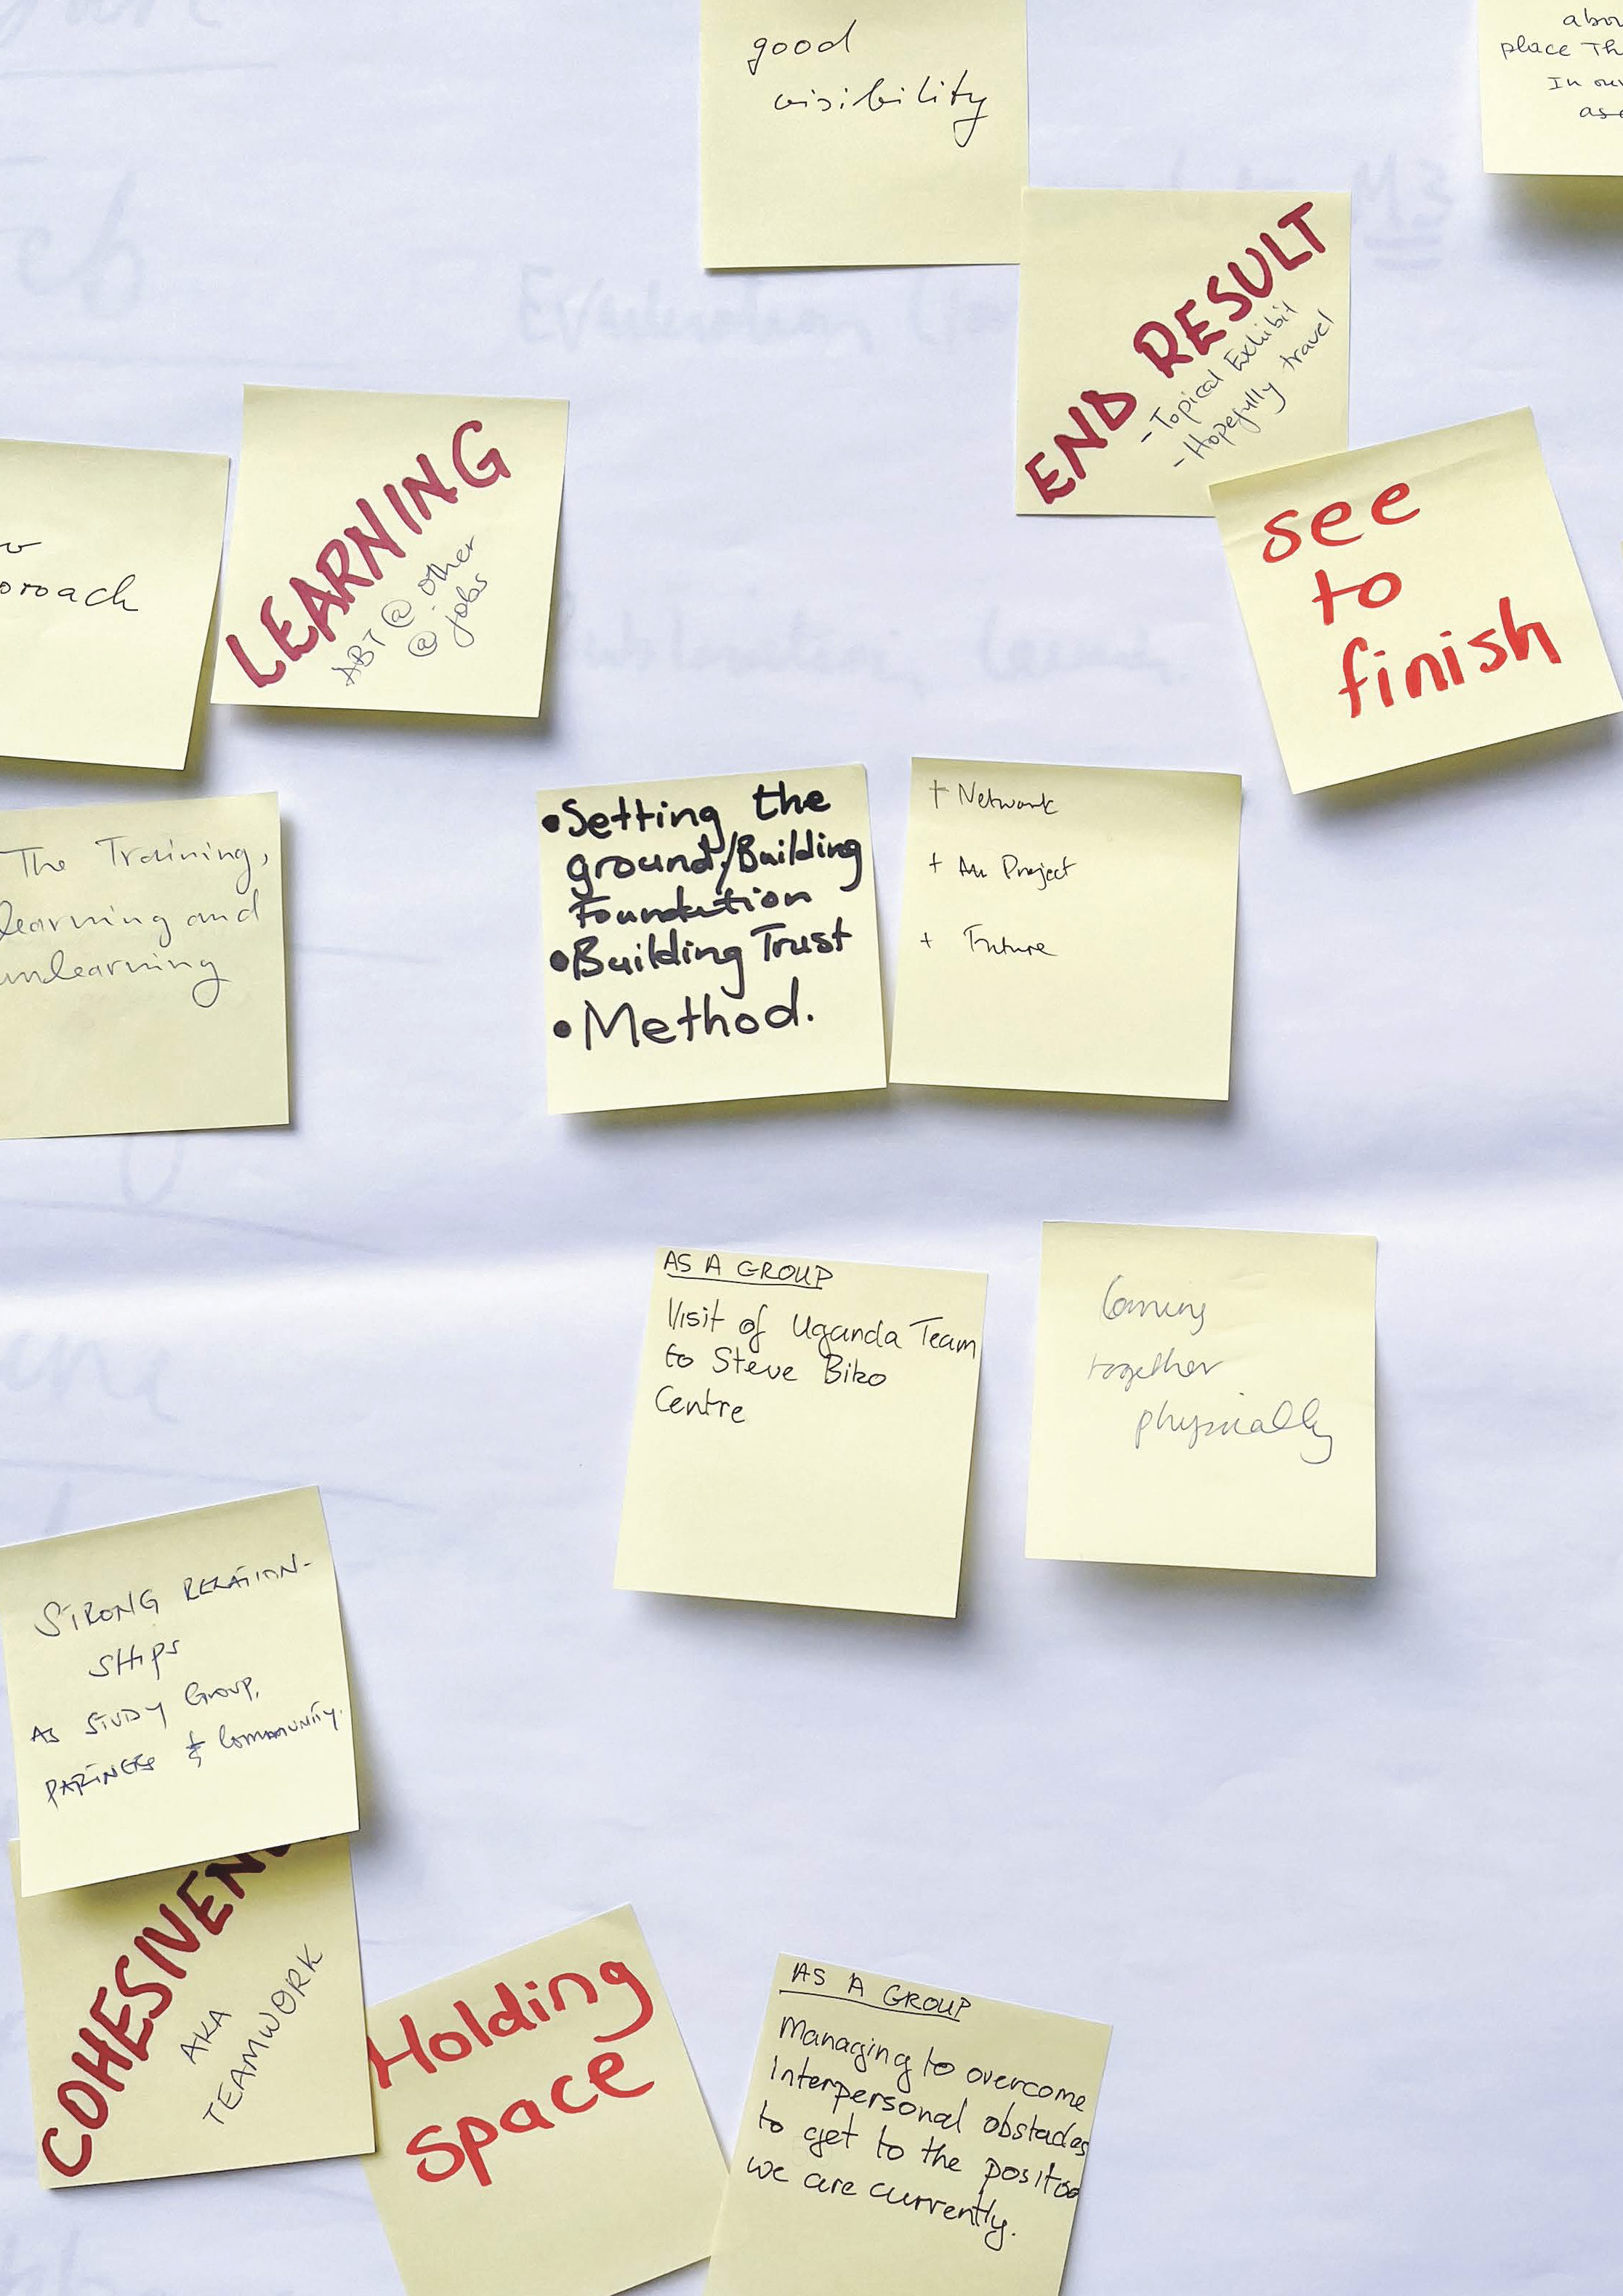 good
visibility
place Th
In our
END RESULT
- Topical Exhibit
- Hopefully travel
M3
LEARNING
ABT @ other
@ jobs
see
to
finish
oroach
The Training,
learning and
unlearning
• Setting the
ground/Building
Foundation
• Building Trust
• Method.
+ Network
+ Project
+ Future
AS A GROUP
Visit of Uganda Team
to Steve Biko
Centre
Coming
together
physically
STRONG RELATION-
SHIPS
AS STUDY Group,
PARTNERS & Community.
COHESIVEN
AKA
TEAMWORK
Holding
space
AS A GROUP
Managing to overcome
Interpersonal obstacles
to get to the position
we are currently.